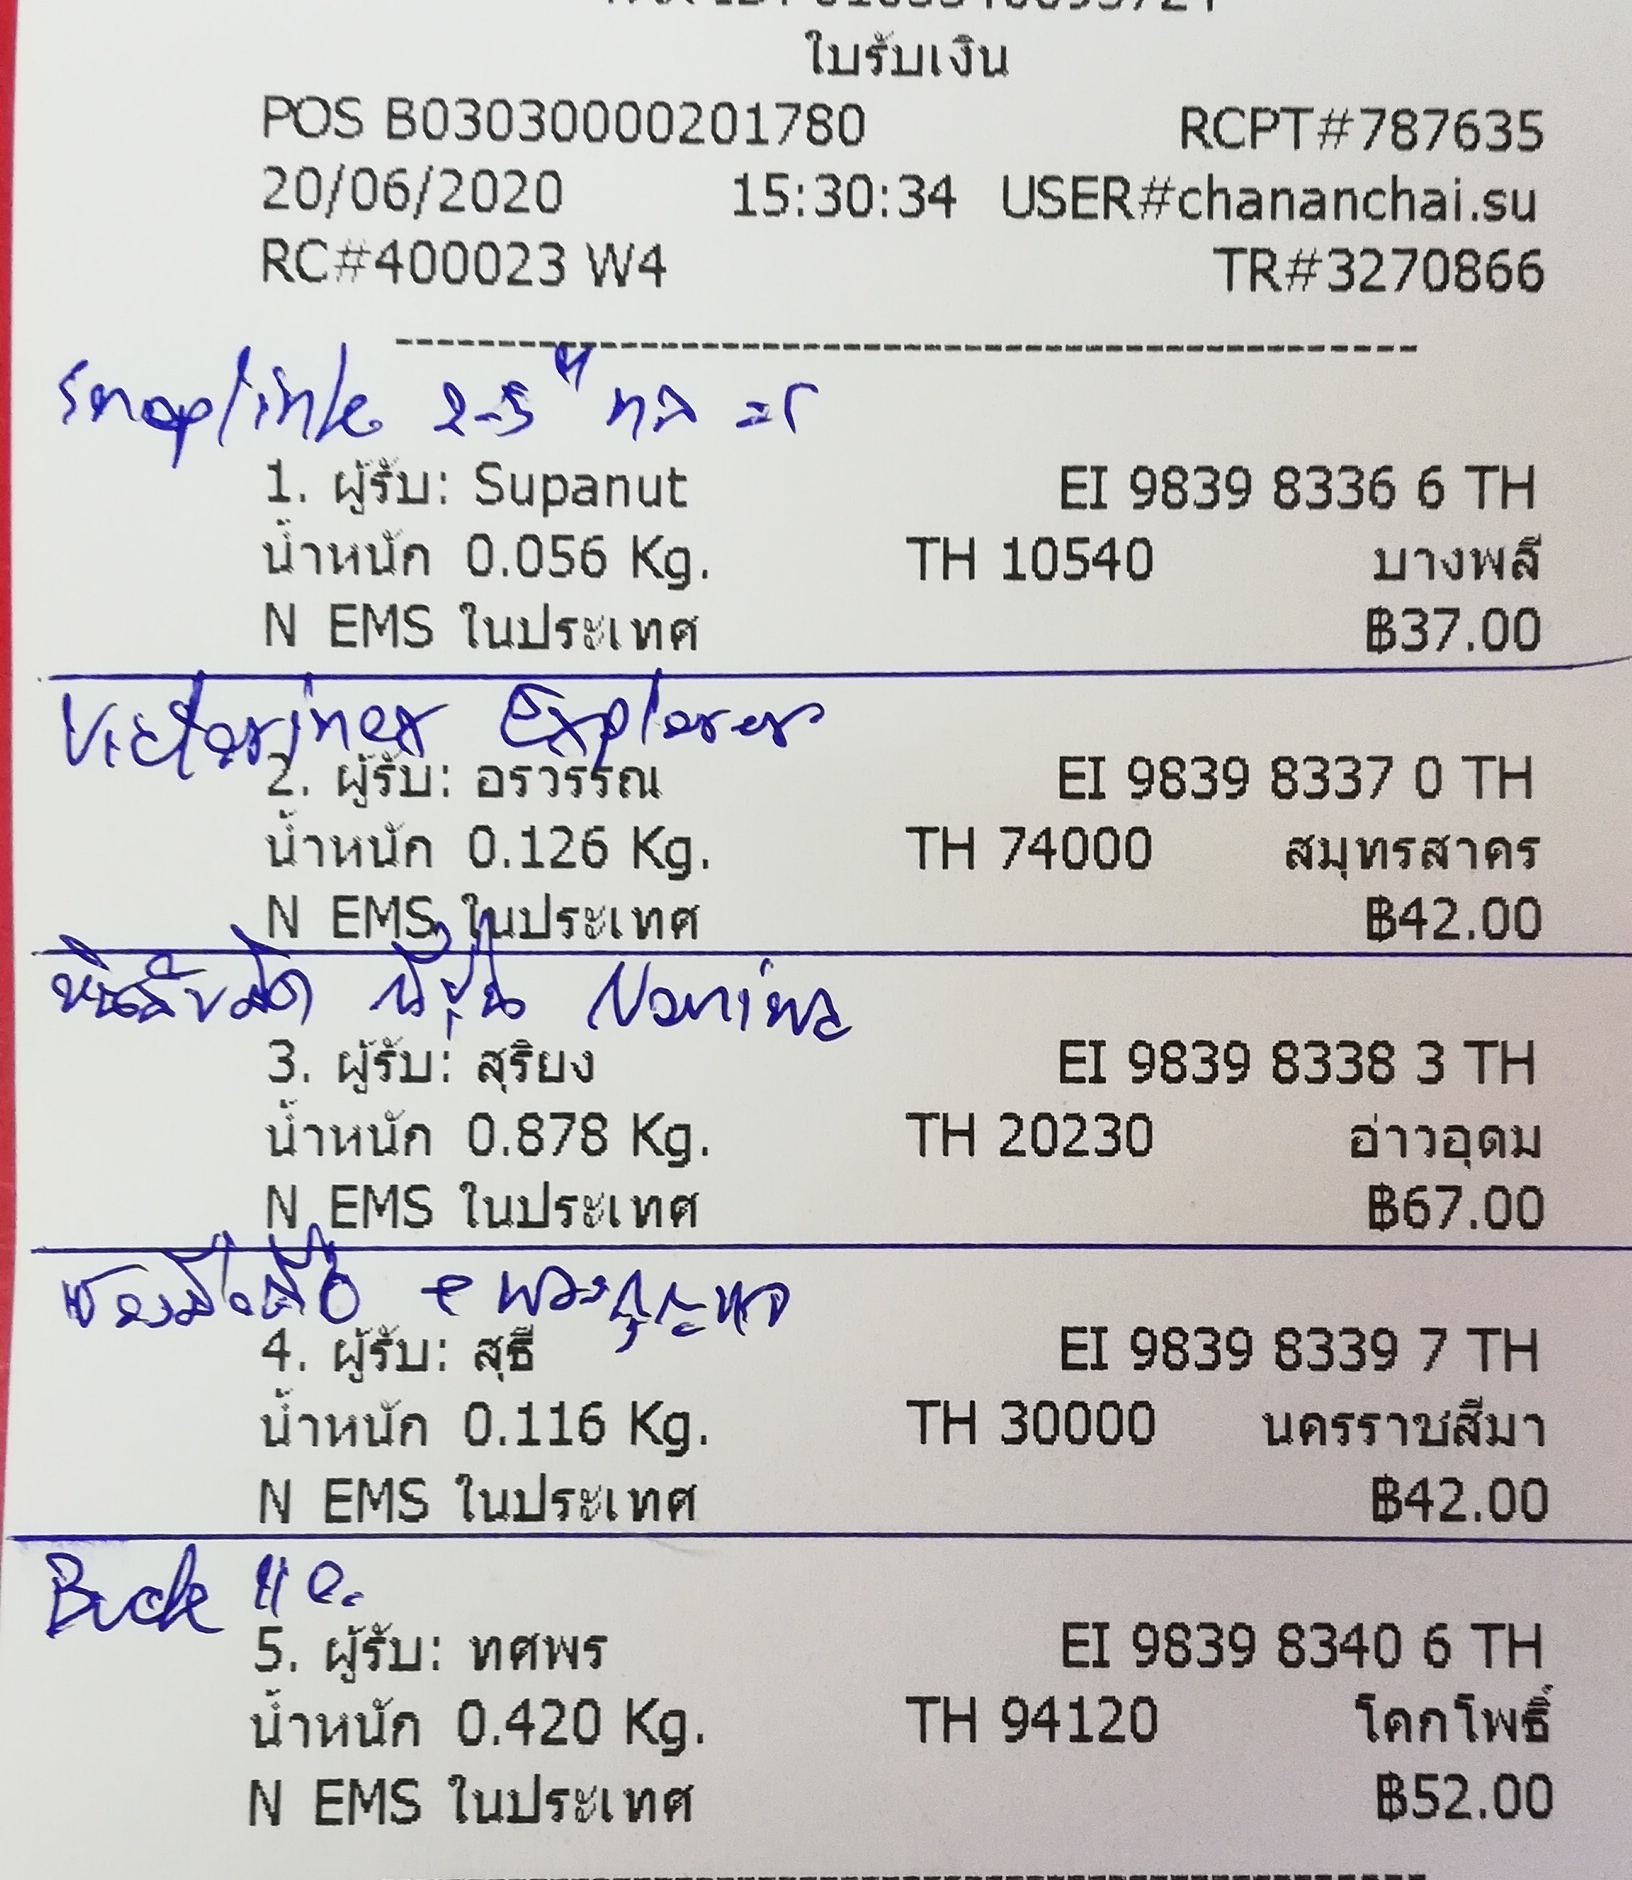 ใบรับเงิน
POS B03030000201780 RCPT#787635
20/06/2020 15:30:34 USER#chananchai.su
RC#400023 W4 TR#3270866
Snaplink 2-5"
1. ผู้รับ: Supanut EI 9839 8336 6 TH
น้ำหนัก 0.056 Kg. TH 10540 บางพลี
N EMS ในประเทศ ฿37.00
Victorinox Explorer
2. ผู้รับ: อรวรรณ EI 9839 8337 0 TH
น้ำหนัก 0.126 Kg. TH 74000 สมุทรสาคร
N EMS ในประเทศ ฿42.00
หินลับมีด ญี่ปุ่น Naniwa
3. ผู้รับ: สุริยง EI 9839 8338 3 TH
น้ำหนัก 0.878 Kg. TH 20230 อ่าวอุดม
N EMS ในประเทศ ฿67.00
พวงกุญแจ
4. ผู้รับ: สุธี EI 9839 8339 7 TH
น้ำหนัก 0.116 Kg. TH 30000 นครราชสีมา
N EMS ในประเทศ ฿42.00
Buck 110
5. ผู้รับ: ทศพร EI 9839 8340 6 TH
น้ำหนัก 0.420 Kg. TH 94120 โคกโพธิ์
N EMS ในประเทศ ฿52.00